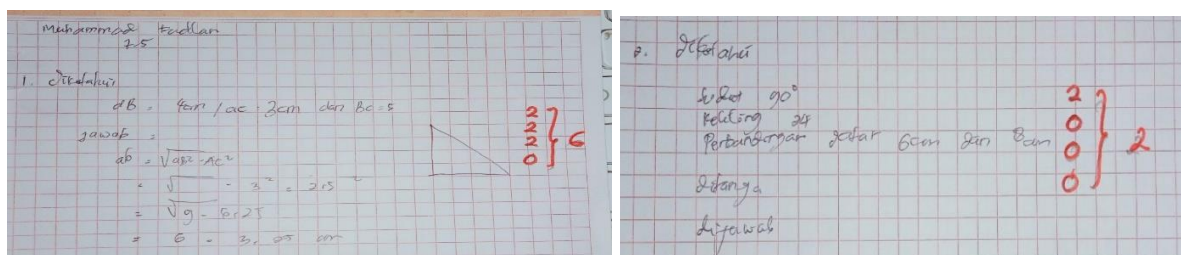 Muhammad Fadlan
7.5
1. diketahui
dB = 4cm / ac = 3cm dan Bc = 5
jawab =
ab = √ - Ac²
= √ - 3² = 2,5²
= √9 - 6,25
= 6 - 3, cm
2
2
2
0
} 6
2. diketahui
90°
Keliling 24
Perbandingan datar 6cm dan 8cm
ditanya
dijawab
2
0
0
0
} 2